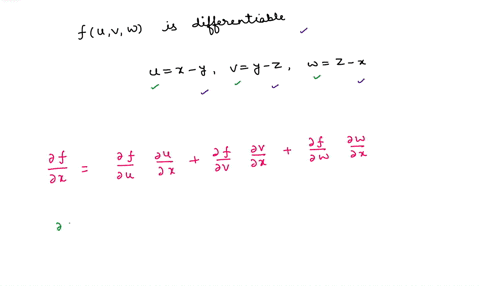 f(u,v,w) is differentiable
u=x-y, v=y-z, w=z-x
∂f/∂x = ∂f/∂u ∂u/∂x + ∂f/∂v ∂v/∂x + ∂f/∂w ∂w/∂x
∂